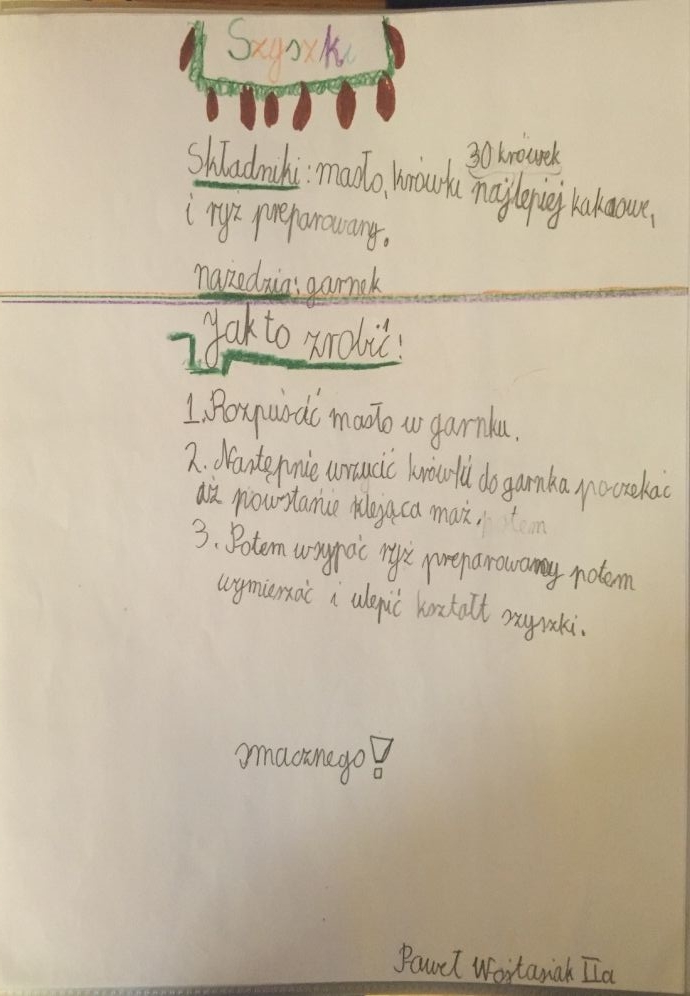 Szyszki
30 krówek
Składniki: masło, krówki najlepiej kakaowe,
i ryż preparowany.
nażędzia: garnek
Jak to zrobić!
1. Rozpuścić masło w garnku.
2. Następnie wrzucić krówki do garnka poczekać
aż powstanie klejąca maź. potem
3. Potem wsypać ryż preparowany potem
wymierzać i ulepić kształt szyszki.
smacznego!
Paweł Wojtasiak IIa